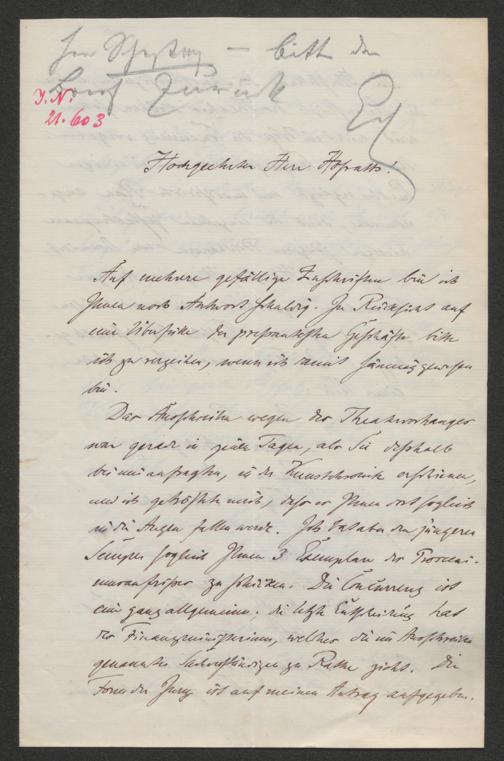 Herr – bitte den
Brief zurück
I. N.
21.603
Hochgeehrter Herr Hofrath!
Auf mehrere gefällige Zuschriften bin ich
Ihnen noch Antwort schuldig. In Rücksicht auf
eine der pressantesten Geschäfte bitte
ich zu verzeihen, wenn ich damit säumig gewesen
bin.
Das Ausschreiben wegen des Theatervorhanges
war gerade in jenen Tagen, als Sie deßhalb
bei mir anfragten, in der Kunstchronik erschienen,
und ich getröstete mich, daß es Ihnen dort sogleich
in die Augen fallen werde. Ich bat aber den jüngeren
Semper sogleich Ihnen 3 Exemplare des Prosceni-
umsaufrisses zu schicken. Die Concurrenz ist
eine ganz allgemeine; die letzte Entscheidung hat
das Finanzministerium, welches die im Ausschreiben
genannten Sachverständigen zu Rathe zieht. Die
Form der Jury ist auf meinen Antrag aufgegeben.